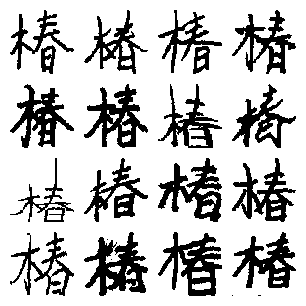 椿椿椿椿
椿椿椿椿
椿椿椿椿
椿椿椿椿